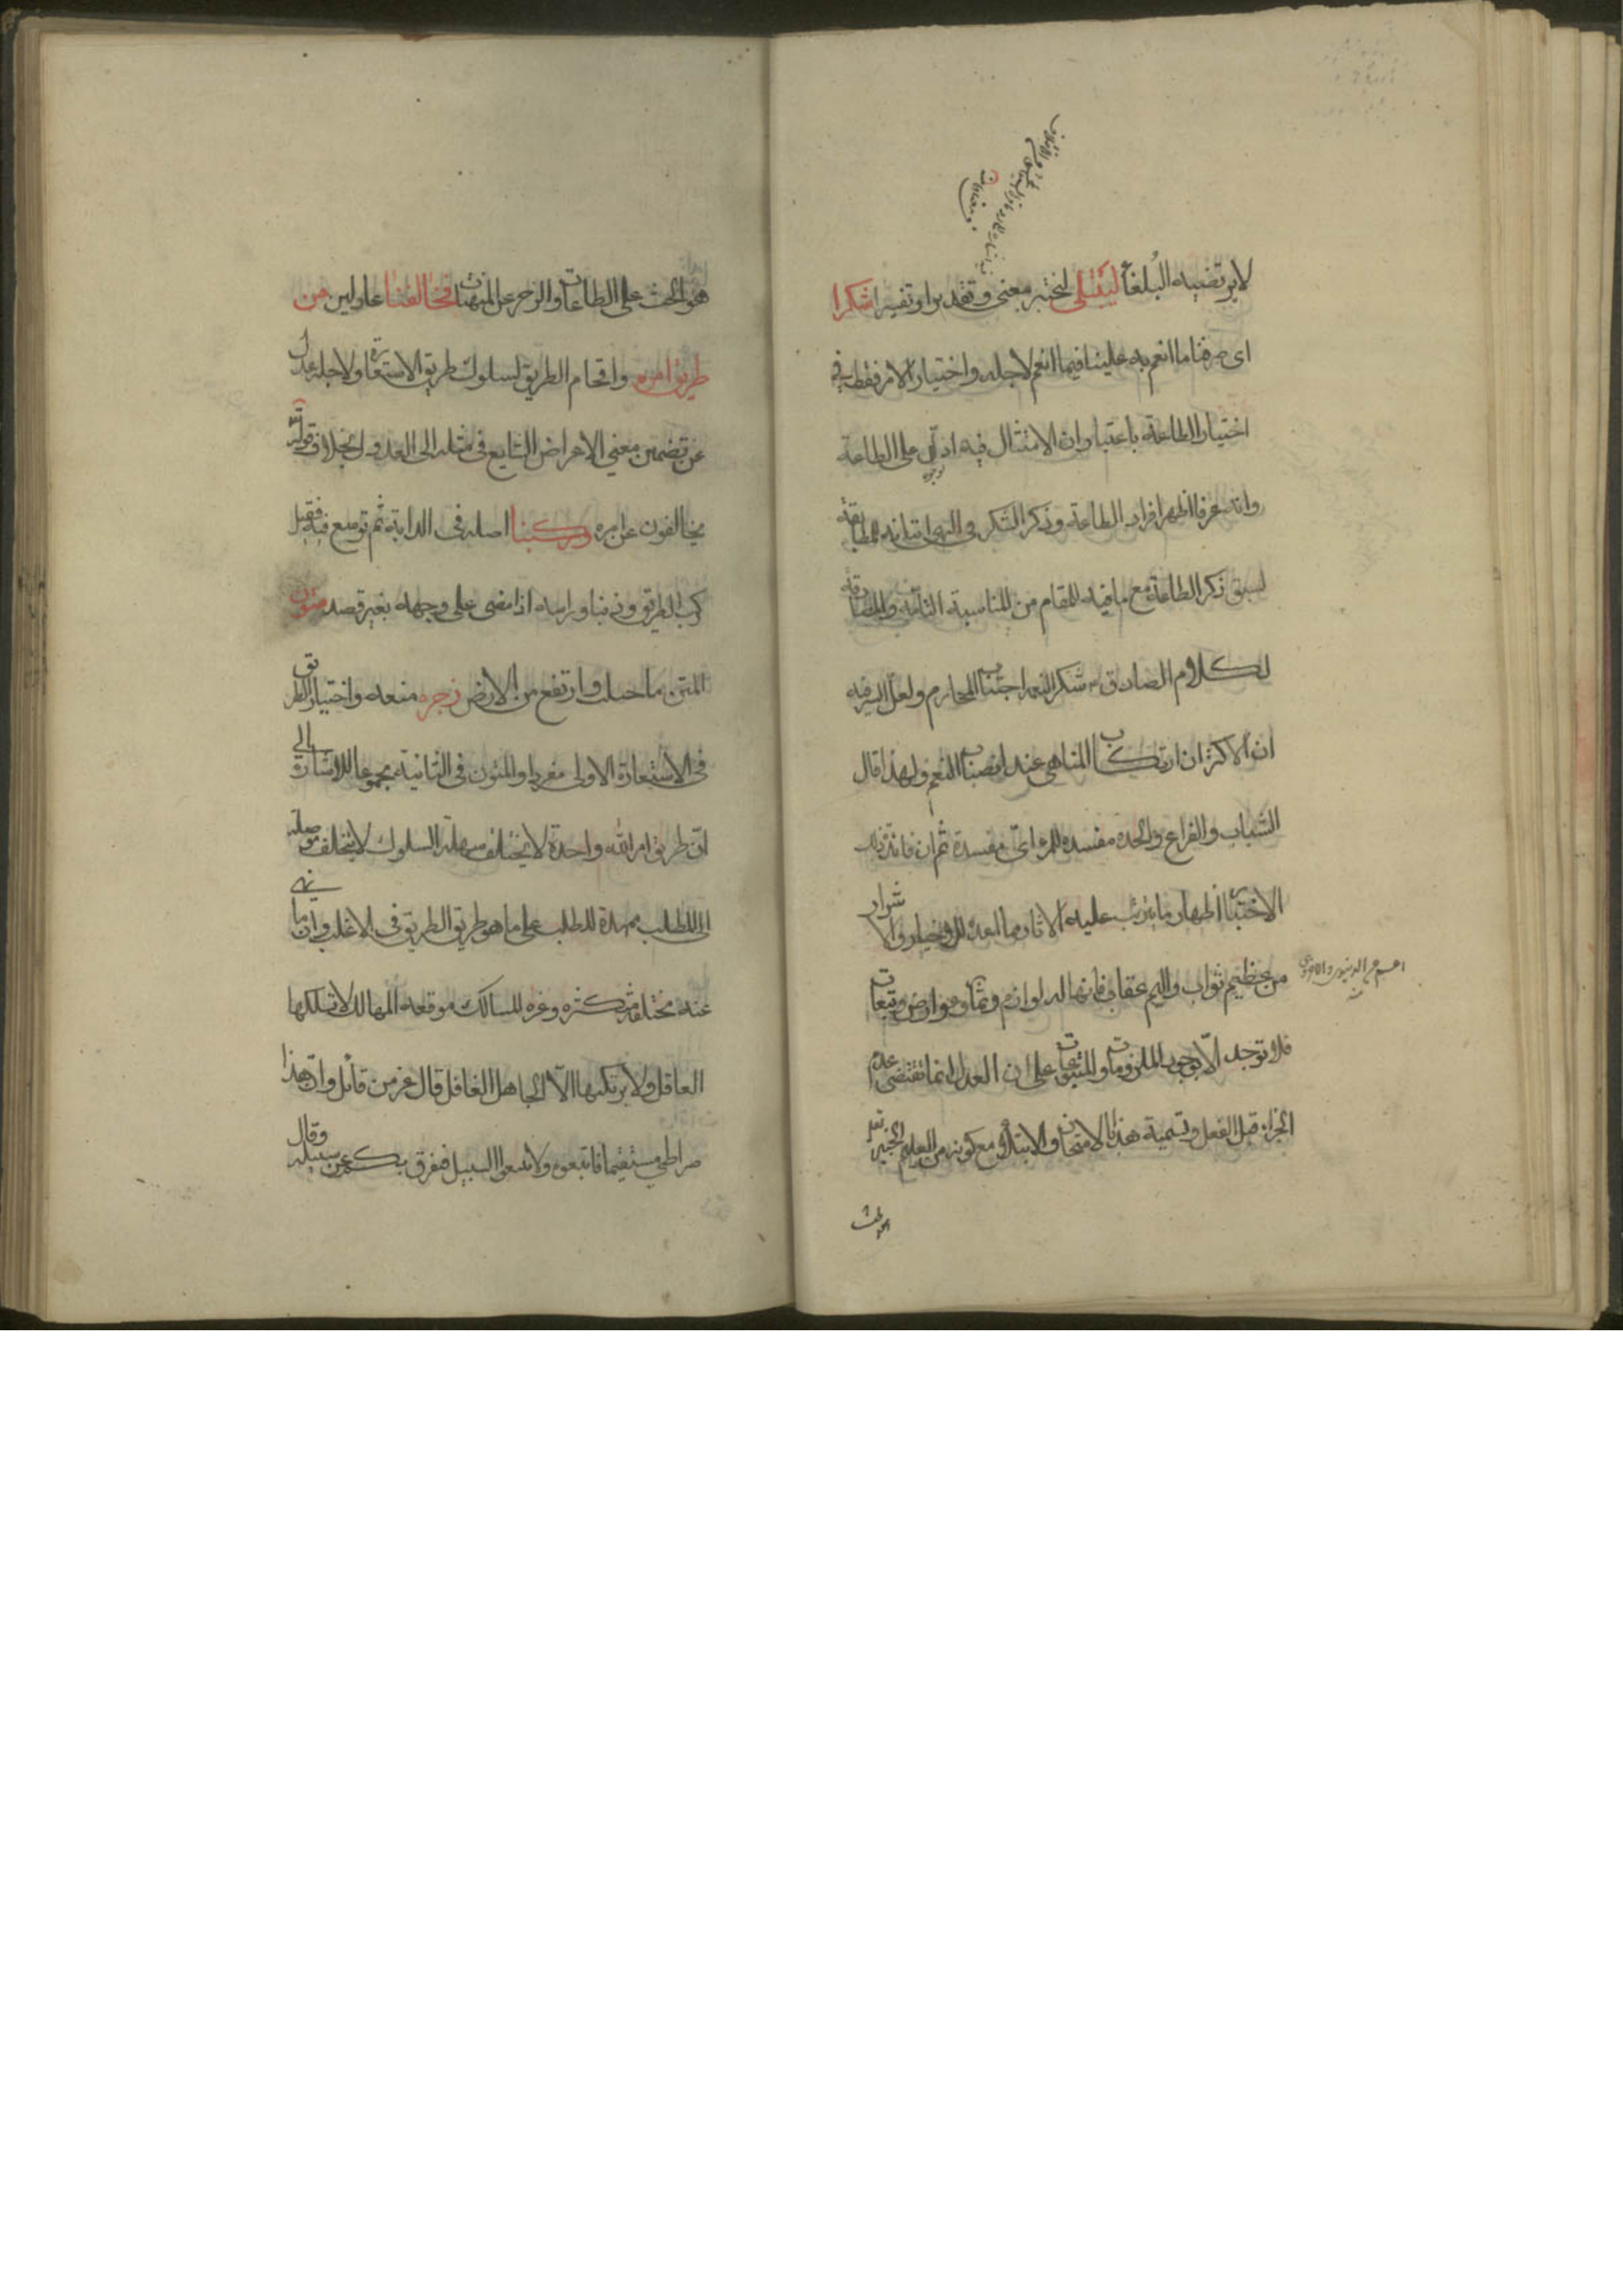 لا يرتضيه البلغاء ليبتلى ليختبر معنى وتقديرا وتفسيرا شكرنا
اى صرفنا ما انعم به علينا فيما انعم لاجله واختيار الامر فقط فى
اختيار الطاعة باعتبار ان الامتثال فيه ادل على الطاعة
وانه عرفا اظهر افراد الطاعة وذكر الشكر فى النهى
لسبق ذكر الطاعة مع ما فيه للمقام من المناسبة التامة والمطابقة
لكلام الصادق شكر النعم اجتناب المحارم ولعل السر فيه
ان الاكثر ان ارتكاب المناهى عند انصباب النعم ولهذا قال
الشباب والفراغ والجدة مفسدة للمرء اى مفسدة ثم ان فائدة
الاختبار اظهار ما يترتب عليه الاثار مما اعد للاخيار والاشرار
من عظيم ثواب واليم عقاب فانها له لوازم وثمار وعوارض وتبعات
فلا توجد الا بوجود الملزومات والمتبوعات على ان العدل انما تقتضى عدم
الجزاء قبل الفعل وتسمية هذا بالامتحان والابتلاء مع كونه من العليم الخبير
هو الحث على الطاعات والزجر عن المنهيات فخالفنا عادلين من
طريق امره واقحام الطريق لسلوك طريق الاستعارة ولاجله عدل
عن تضمين معنى الاعراض الشايع فى مثله الى العدول بخلاف قوله
يخالفون عن امره وركبنا اصله فى الدابة ثم توسع فيه فقيل
ركب الطريق وذنبا وراسه اذا مضى على وجهه بغير قصد متون
المتن ما صلب وارتفع من الارض زجره منعه واختيار الطريق
فى الاستعارة الاولى مفردا والمتون فى الثانية مجموعا للاشارة الى
ان طريق امر الله واحدة لا يختلف سهلة السلوك لا يتخلف موصلة
الى المطلب ممهدة للطلب على ما هو طريق الطريق فى الاغلب وان ما نهى
عنه مختلفة متكثرة وعرة المسالك موقعة المهالك لا تسلكها
العاقل ولا يرتكبها الا الجاهل الغافل قال عز من قائل وان هذا
صراطى مستقيما فاتبعوه ولا تتبعوا السبل فتفرق بكم عن سبيله وقال